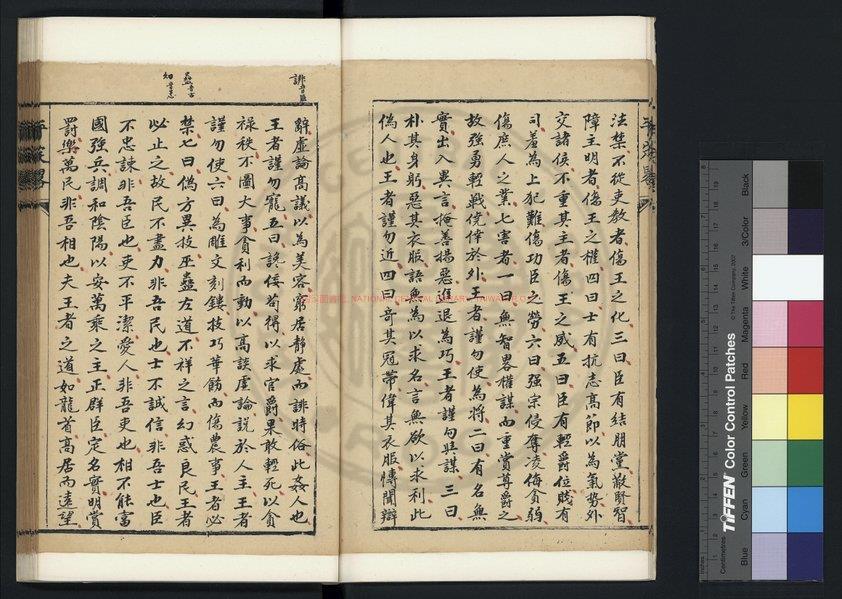 法禁不從吏教者傷王之化三曰臣有結朋黨蔽賢智
障主明者傷王之權四曰士有抗志高節以為氣勢外
交諸侯不重其主者傷王之威五曰臣有輕爵位賤有
司羞為上犯難傷功臣之勞六曰強宗侵奪凌侮貧弱
傷庶人之業七害者一曰無智畧權謀而重賞尊爵之
故強勇輕戰僥倖於外王者謹勿使為將二曰有名無
實出入異言掩善揚惡進退為巧王者謹勿與謀三曰
朴其身躬惡其衣服語無為以求名言無欲以求利此
偽人也王者謹勿近四曰奇其冠帶偉其衣服博聞辯
誹音匪
辭虛論高議以為美容窮居靜處而誹時俗此姦人也
王者謹勿寵五曰讒佞苟得以求官爵果敢輕死以貪
祿秩不圖大事貪利而動以高談虛論說於人主王者
謹勿使六曰為雕文刻鏤技巧華飾而傷農事王者必
蠱音古
禁七曰偽方異技巫蠱左道不祥之言幻惑良民王者
必止之故民不盡力非吾民也士不誠信非吾士也臣
不忠諫非吾臣也吏不平潔愛人非吾吏也相不能富
國強兵調和陰陽以安萬乘之主正群臣定名實明賞
罰樂萬民非吾相也夫王者之道如龍首高居而遠望
TIFFEN Color Control Patches
© The Tiffen Company, 2007
Centimetres
Inches
Blue
Cyan
Green
Yellow
Red
Magenta
White
3/Color
Black